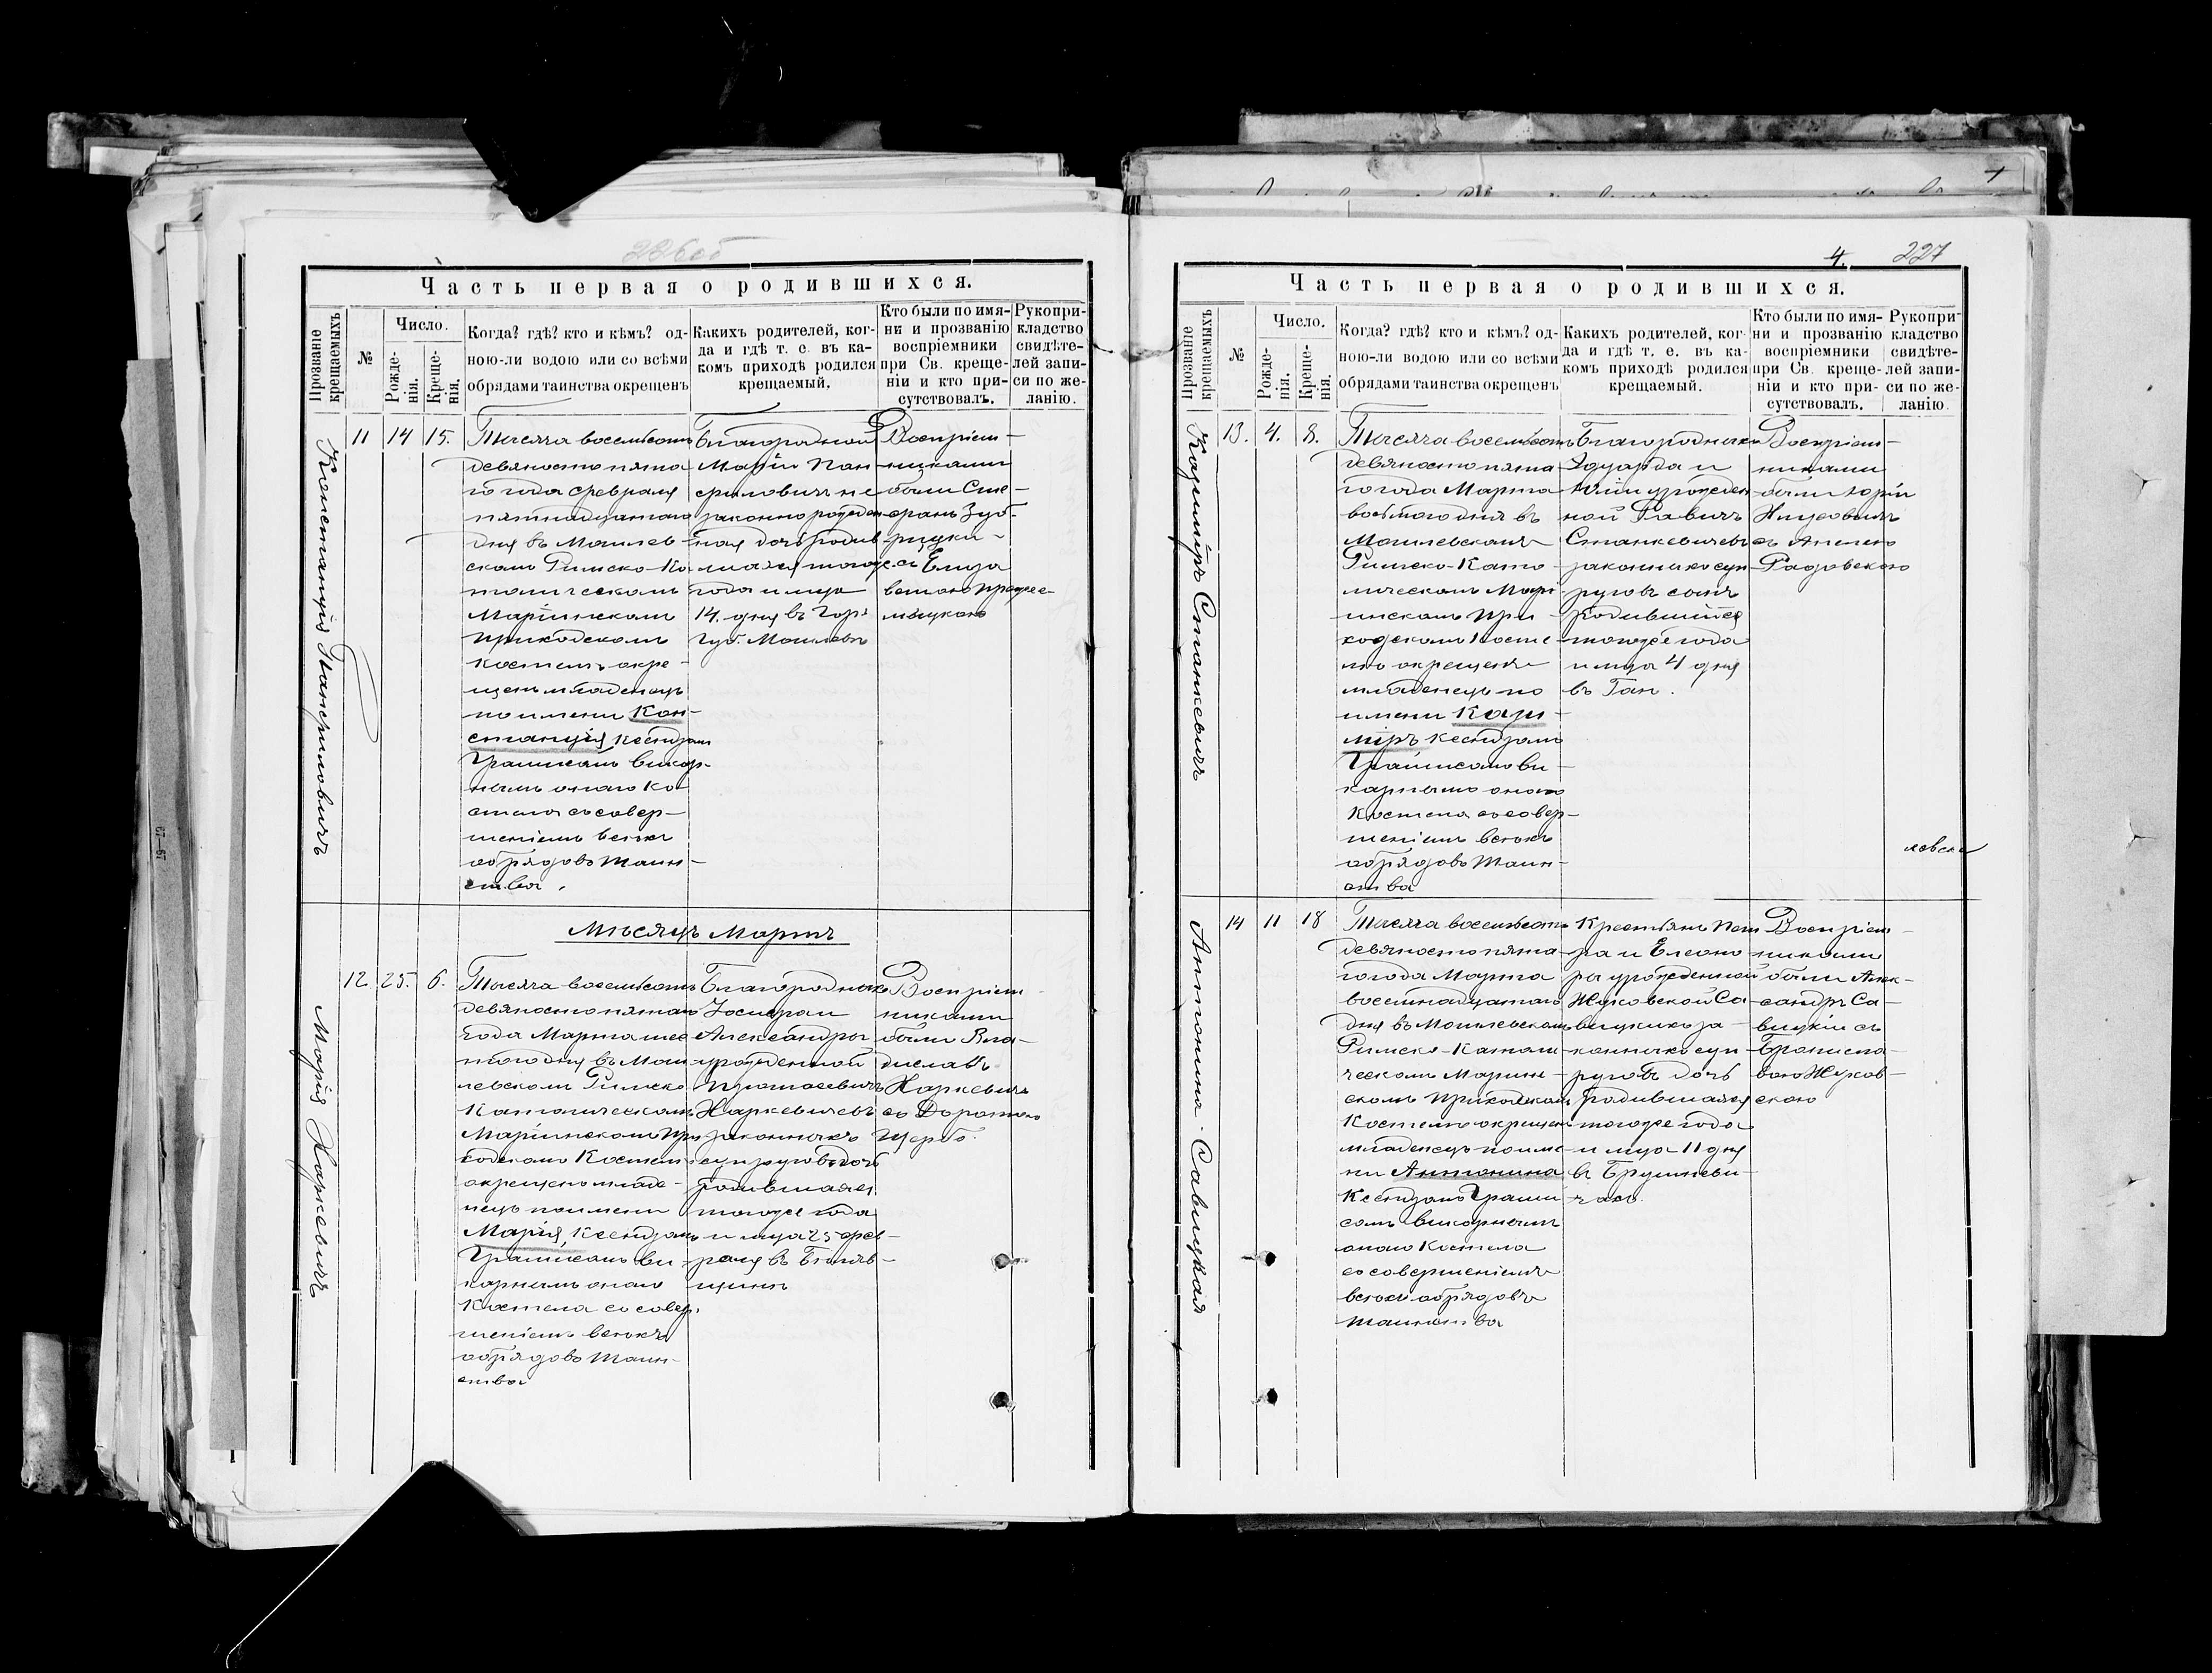 Часть первая о родившихся.
Прозваніе крещаемыхъ
№
Число.
Рожде-
нія.
Креще-
нія.
Когда? гдѣ? кто и кѣмъ? од-
ною-ли водою или со всѣми
обрядами таинства окрещенъ
Какихъ родителей, ког-
да и гдѣ т. е. въ ка-
комъ приходѣ родился
крещаемый.
Кто были по имя-
ни и прозванію
воспріемники
при Св. креще-
ніи и кто при-
сутствовалъ.
Рукопри-
кладство
свидѣте-
лей запи-
си по же-
ланію.
Констанція Панфиловичъ
11 14 15.
Тысяча восемьсотъ
девяносто пята
го года февраля
пятнадцатаго
дня въ Могилев
скомъ Римско-Ка
толическомъ
Маріинскомъ
Приходскомъ
Костелѣ окре-
щенъ младенецъ
по имени Кон-
станція Ксендзомъ
викар-
нымъ онаго Ко
стела со совер-
шеніемъ всѣхъ
обрядовъ Таин-
ства.
Благородной
Маріи Пан
филовичъ не
законно рожден
ная дочь родив
шаяся того же
года и м-ца
14. дня въ Гор.
Губ. Могилевѣ
Воспріем-
никами
были Сте-
фанъ
съ Елиза
ветою
Мѣсяцъ Мартъ
Марія Харкевичъ
12 25. 6.
Тысяча восемьсотъ
девяносто пятаго
года Марта шес
таго дня въ Моги
левскомъ Римско
Католическомъ
Маріинскомъ При
ходскомъ Костелѣ
окрещенъ младе-
нецъ по имени
Марія, Ксендзомъ
ви
карнымъ онаго
Костела со совер
шеніемъ всѣхъ
обрядовъ Таин-
ства
Благородныхъ
Іосифа и
Александры
урожденной
Протасевичъ
Харкевичевъ
законныхъ
супруговъ дочь
родившаяся
того же года
и м-ца 25 фев-
раля въ
Воспріем-
никами
были Вла-
диславъ
Харкевичъ
съ Доротою
Щербо.
4. 227
Часть первая о родившихся.
Прозваніе крещаемыхъ
№
Число.
Рожде-
нія.
Креще-
нія.
Когда? гдѣ? кто и кѣмъ? од-
ною-ли водою или со всѣми
обрядами таинства окрещенъ
Какихъ родителей, ког-
да и гдѣ т. е. въ ка-
комъ приходѣ родился
крещаемый.
Кто были по имя-
ни и прозванію
воспріемники
при Св. креще-
ніи и кто при-
сутствовалъ.
Рукопри-
кладство
свидѣте-
лей запи-
си по же-
ланію.
Казиміръ Станкевичъ
13. 4. 8.
Тысяча восемьсотъ
девяносто пята
го года Марта
восьмого дня въ
Могилевскомъ
Римско-Като
лическомъ Марі
инскомъ При
ходскомъ Косте
лѣ окрещенъ
младенецъ по
имени Кази-
міръ Ксендзомъ
ви-
карнымъ онаго
Костела со совер-
шеніемъ всѣхъ
обрядовъ Таин-
ства
Благородныхъ
Эдуарда и
Юліи урожден
ной Равичъ
Станкевичевъ
законныхъ суп
руговъ сынъ
родившійся
того же года
и м-ца 4 дня
въ
Воспріем-
никами
были Юрій
съ
Антонина Савицкая
14 11 18
Тысяча восемьсотъ
девяносто пята
го года Марта
восемнадцатаго
дня въ Могилевскомъ
Римско-Католи
ческомъ Маріин-
скомъ Приходскомъ
Костелѣ окрещенъ
младенецъ по име
ни Антонина
Ксендзомъ
викарнымъ
онаго Костела
со совершеніемъ
всѣхъ обрядовъ
Таинства
Крестьянъ Пет
ра и Елеоно
ры урожденной
Жуковской Са
вицкихъ за-
конныхъ суп
руговъ дочь
родившаяся
того же года
и м-ца 11 дня
въ
Воспріем-
никами
были Алек-
сандръ Са-
вицкій съ
Брониславою Жуков-
скою